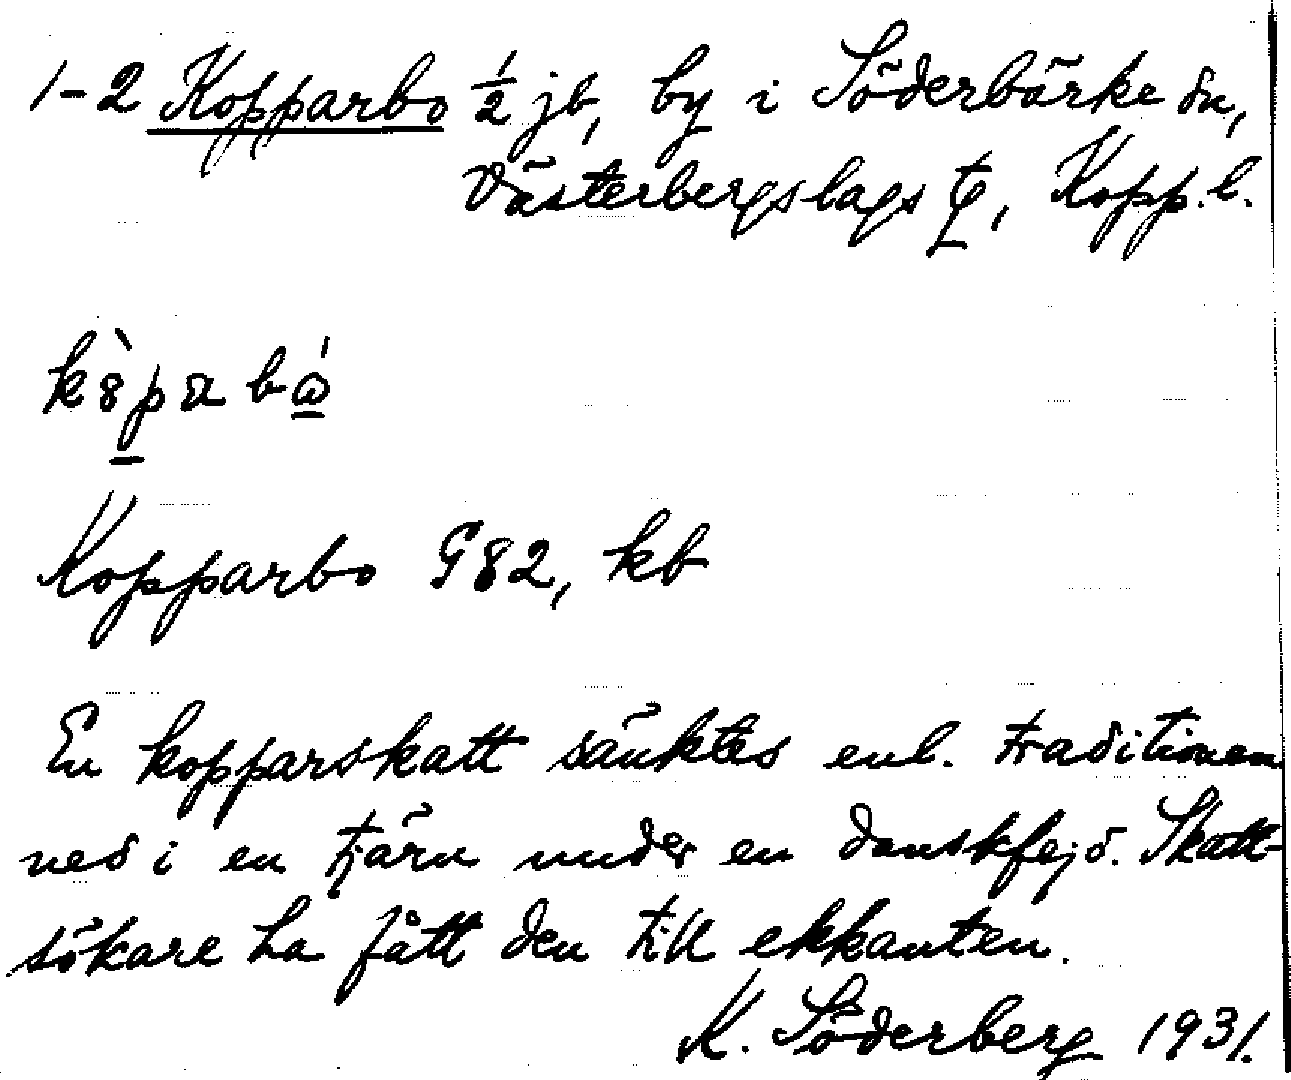 1-2 Kopparbo ½ jb, by i Söderbärke sn,
Västerbergslags tg, Kopp. l.
Kopparbo G82, kb
En kopparskatt sänktes enl. traditionen
ned i en tjärn under en danskfejd. Skatt-
sökare ha fått den till ekkanten.
K. Söderberg 1931.